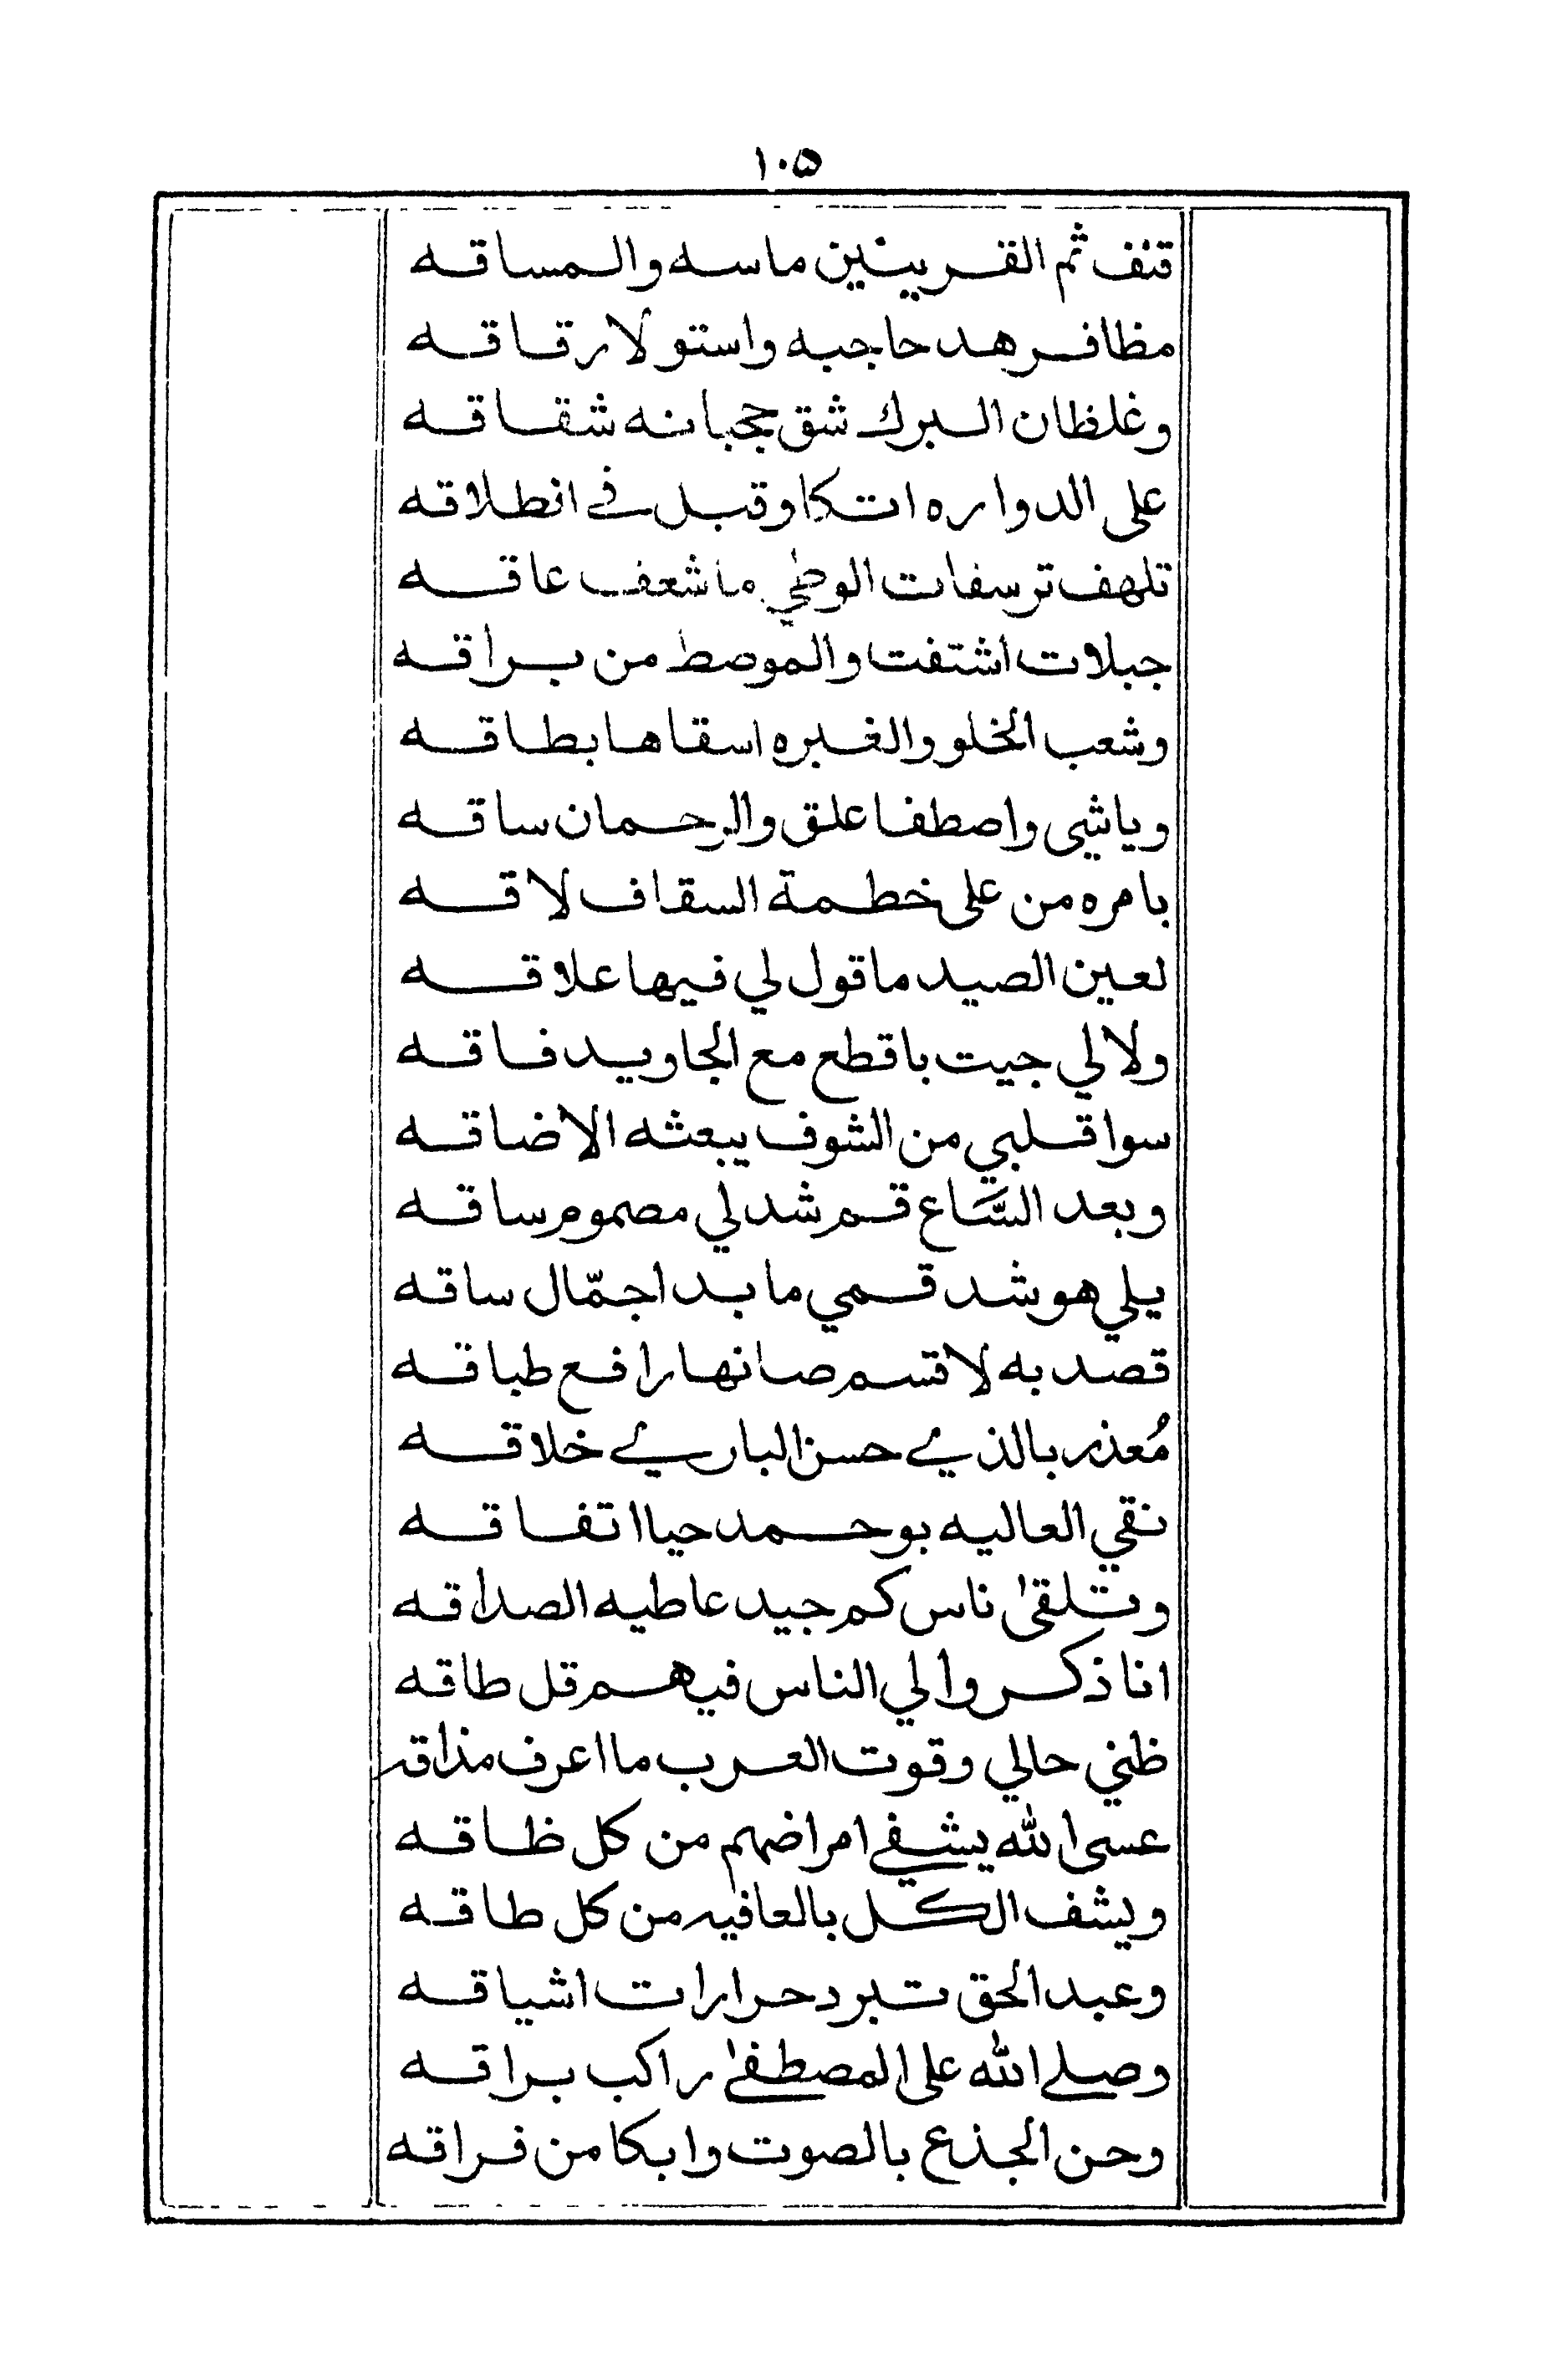 ١٠٥
قنف ثم القرينين ماسه والمساقه
مظافر هد حاجبه واستولا رقاقه
وغلظان البرك شق حجبانه شقاقه
على الدواره اتكا وقبل في انطلاقه
تلهف ترسفات الوطي ما شعف عاقه
جبلات اشتفت والموصط من براقه
وشعب الخلو والغبره اسقاها بطاقه
وياشي واصطفا علق والرحمان ساقه
بامره من على خطمة السقاف لاقه
لعين الصيد ماقول لي فيها علاقه
ولا لي جيت باقطع مع الجاويد فاقه
سوا قلبي من الشوف يبعثه الاضاقه
وبعد السَّاع قم شد لي مصموم ساقه
يلي هو شد قمي ما بدا جمّال ساقه
قصد به لا قسم صانها رافع طباقه
مُعذر بالذي حسن الباري خلاقه
نقي العاليه بو حمد حيا اتفاقه
وتلقى ناس كم جيد عاطيه الصداقه
انا ذكروا لي الناس فيهم قل طاقه
ظني حالي وقوت العرب ما اعرف مذاقه
عسى الله يشفي امراضهم من كل ظاقه
ويشف الكل بالعافيه من كل طاقه
وعبد الحق تبرد حرارات اشياقه
وصلى الله على المصطفى راكب براقه
وحن الجذع بالصوت وابكا من فراقه